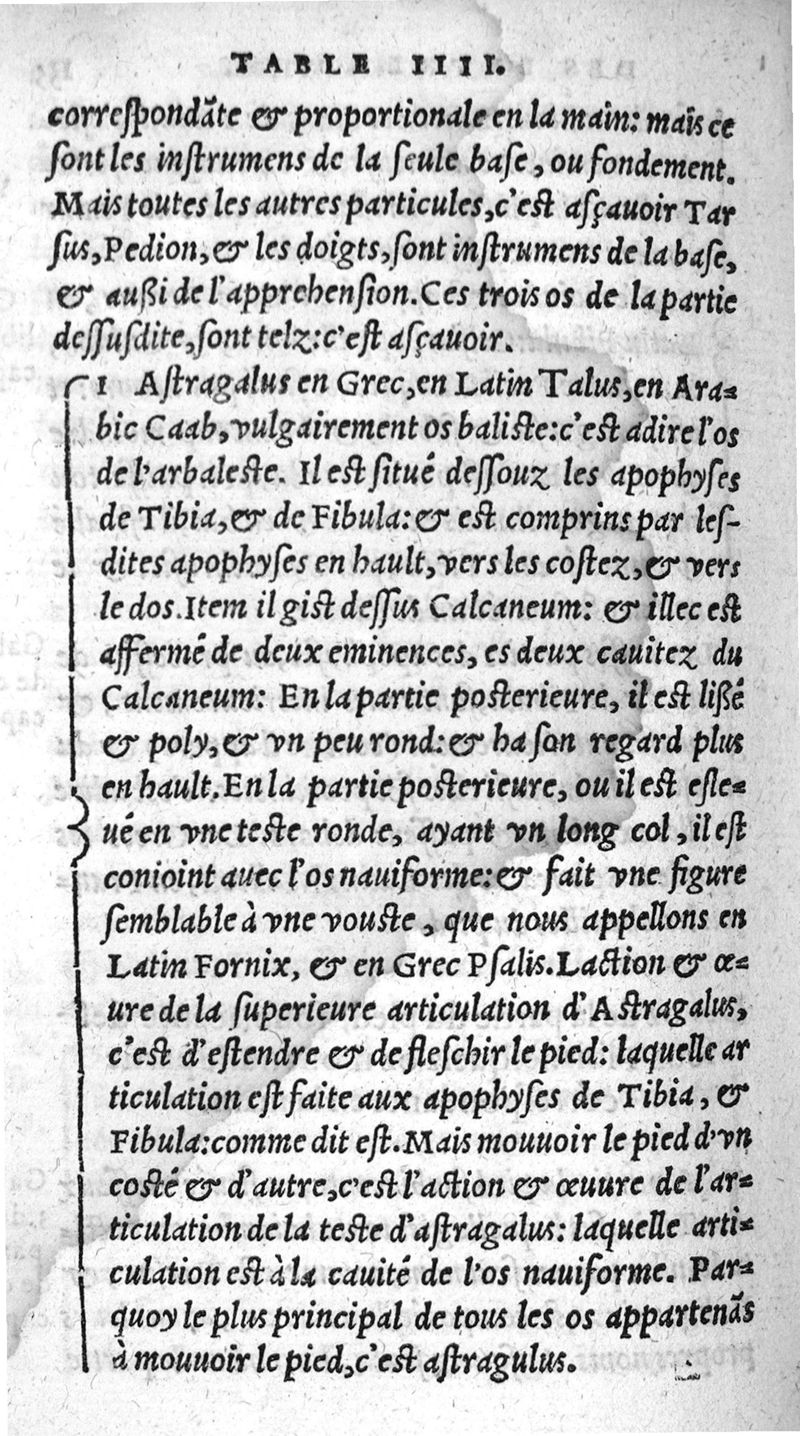 TABLE IIII.
correſpondāte & proportionale en la main: mais ce
ſont les inſtrumens de la ſeule baſe, ou fondement.
Mais toutes les autres particules, c'eſt aſçauoir Tar
ſus, Pedion, & les doigts, ſont inſtrumens de la baſe,
& außi de l'apprehenſion. Ces trois os de la partie
deſſuſdite, ſont telz: c'eſt aſçauoir.
1 Aſtragalus en Grec, en Latin Talus, en Ara-
bic Caab, vulgairement os baliſte: c'eſt adire l'os
de l'arbaleſte. Il eſt ſitué deſſouz les apophyſes
de Tibia, & de Fibula: & eſt comprins par leſ-
dites apophyſes en hault, vers les coſtez, & vers
le dos. Item il giſt deſſus Calcaneum: & illec eſt
affermé de deux eminences, es deux cauitez du
Calcaneum: En la partie poſterieure, il eſt lißé
& poly, & vn peu rond: & ha ſon regard plus
en hault. En la partie poſterieure, ou il eſt eſle-
ué en vne teſte ronde, ayant vn long col, il eſt
conioint auec l'os nauiforme: & fait vne figure
ſemblable à vne vouſte, que nous appellons en
Latin Fornix, & en Grec Pſalis. Laction & œ-
ure de la ſuperieure articulation d'Aſtragalus,
c'eſt d'eſtendre & de fleſchir le pied: laquelle ar
ticulation eſt faite aux apophyſes de Tibia, &
Fibula: comme dit eſt. Mais mouuoir le pied d'vn
coſté & d'autre, c'eſt l'action & œuure de l'ar-
ticulation de la teſte d'aſtragalus: laquelle arti-
culation eſt à la cauité de l'os nauiforme. Par-
quoy le plus principal de tous les os appartenās
à mouuoir le pied, c'eſt aſtragulus.